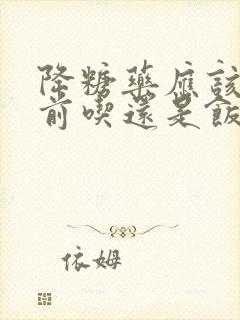 降糖藥應該
前喫還是飯
依姆